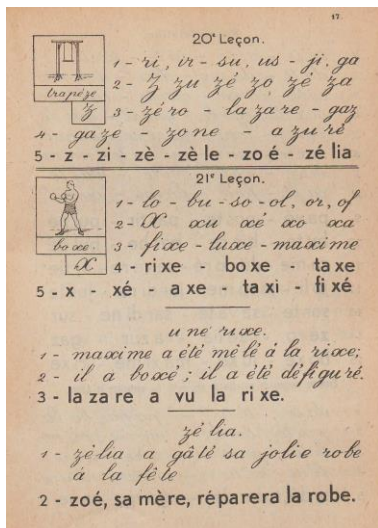 17.
20e Leçon.
trapèze
z
1 - ri, ir - su, us - ji, ga
2 - Z zu zé zo zé za
3 - zéro - lazare - gaz
4 - gaze - zone - azuré
5 - z - zi - zè - zèle - zoé - zélia
21e Leçon.
boxe.
x
1 - lo - bu - so - ol, or, of
2 - X xu xé xo xa
3 - fixe - luxe - maxime
4 - rixe - boxe - taxe
5 - x - xé - axe - taxi - fixé
une rixe.
1 - maxime a été mêlé à la rixe;
2 - il a boxé ; il a été défiguré.
3 - lazare a vu la rixe.
zélia.
1 - zélia a gâté sa jolie robe
à la fête
2 - zoé, sa mère, réparera la robe.